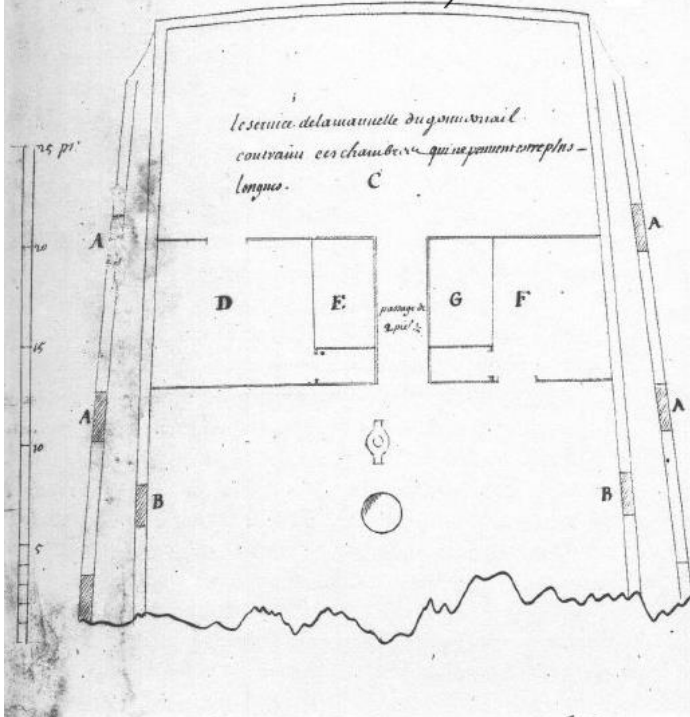 le service de la manuelle du gouvernail
contraint ces chambres qui ne peuvent estre plus
longues.
C
25 pi.
A
A
20
D
E
passage de
2 pies ½
G
F
15
A
A
10
B
B
5